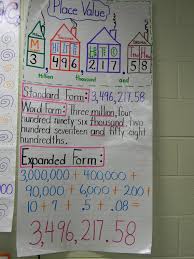 Place Value
M HTO HTO
3, 496, 217. 58
Million thousand and
Standard Form: 3,496,217.58
Word form: Three million, four
hundred ninety six thousand, two
hundred seventeen and fifty eight
hundredths.
Expanded Form:
3,000,000 + 400,000
+ 90,000 + 6,000 + 200
+ 10 + 7 + .5 + .08 =
3,496,217.58